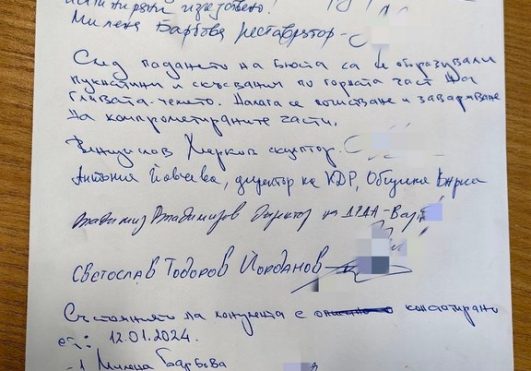 Милена Барбова реставратор -
След подането на бюста са се образували
пукнатини и скъсвания по горната част на
главата - челото. Налага се почистване и заваряване
на компрометираните части.
Хърков скулптор.
Антония Йовчева, директор на КДР, Община Варна
Владимир Владимиров Директор на ДГДА - Варна
СВЕТОСЛАВ ТОДОРОВ ЙОРДАНОВ
Състоянието на паметника е констатирано
на: 12.01.2024.
-1. Милена Барбова